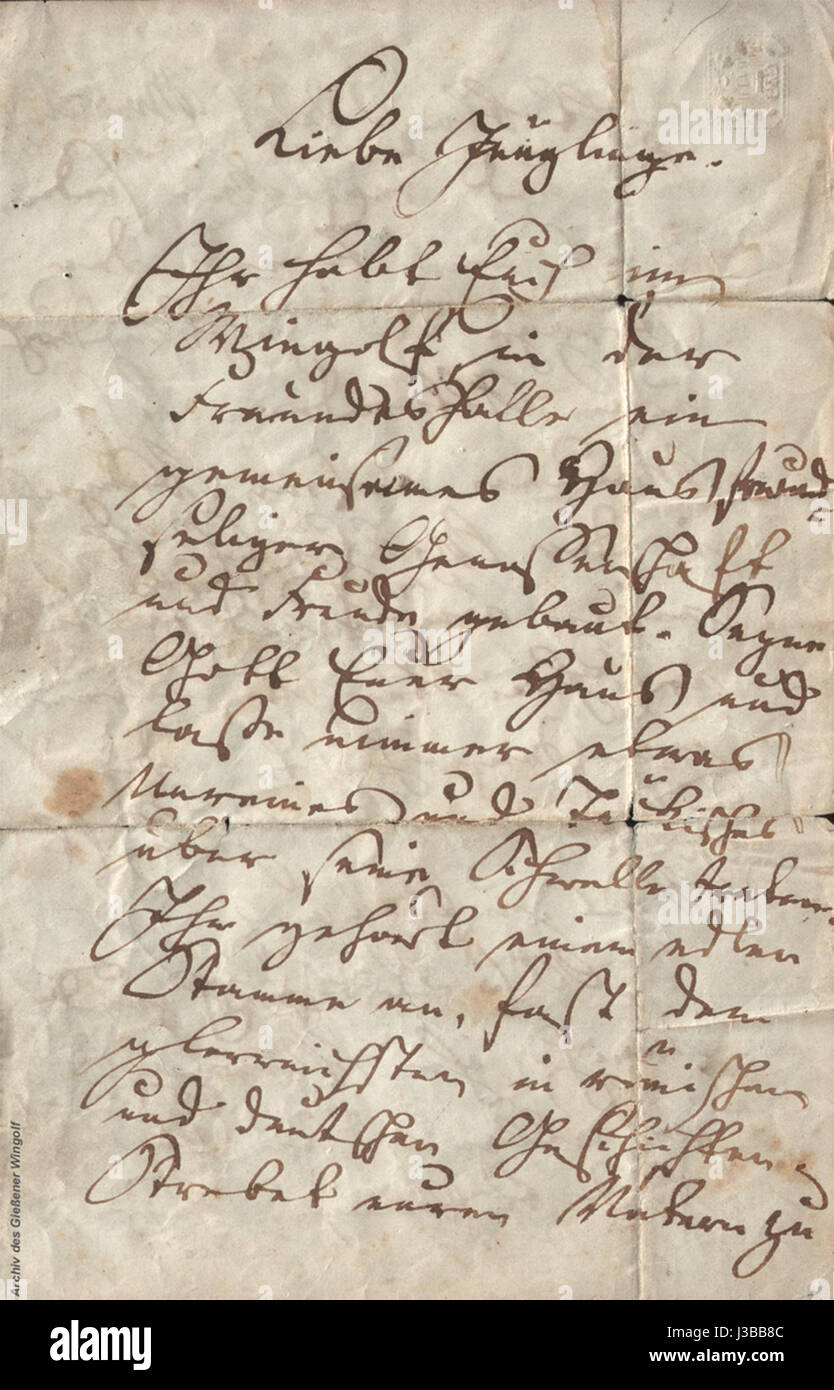 Liebe Jünglinge.
Ihr habt Euch im
Wingolf, in der
Freundeshalle ein
gemeinsames Haus freund
seliger Genossenschaft
und Freude gebaut. Segne
Gott Euer Haus und
lasse nimmer etwas
Unreines und Tückisches
über seine Schwelle treten.
Ihr gehört einem edlen
Stamme an, fast dem
glorreichsten in römischen
und deutschen Geschichten,
Strebet euren Vätern zu
Archiv des Gießener Wingolf
alamy
alamy
a
a
a
a
alamy
Image ID: J3BB8C
www.alamy.com